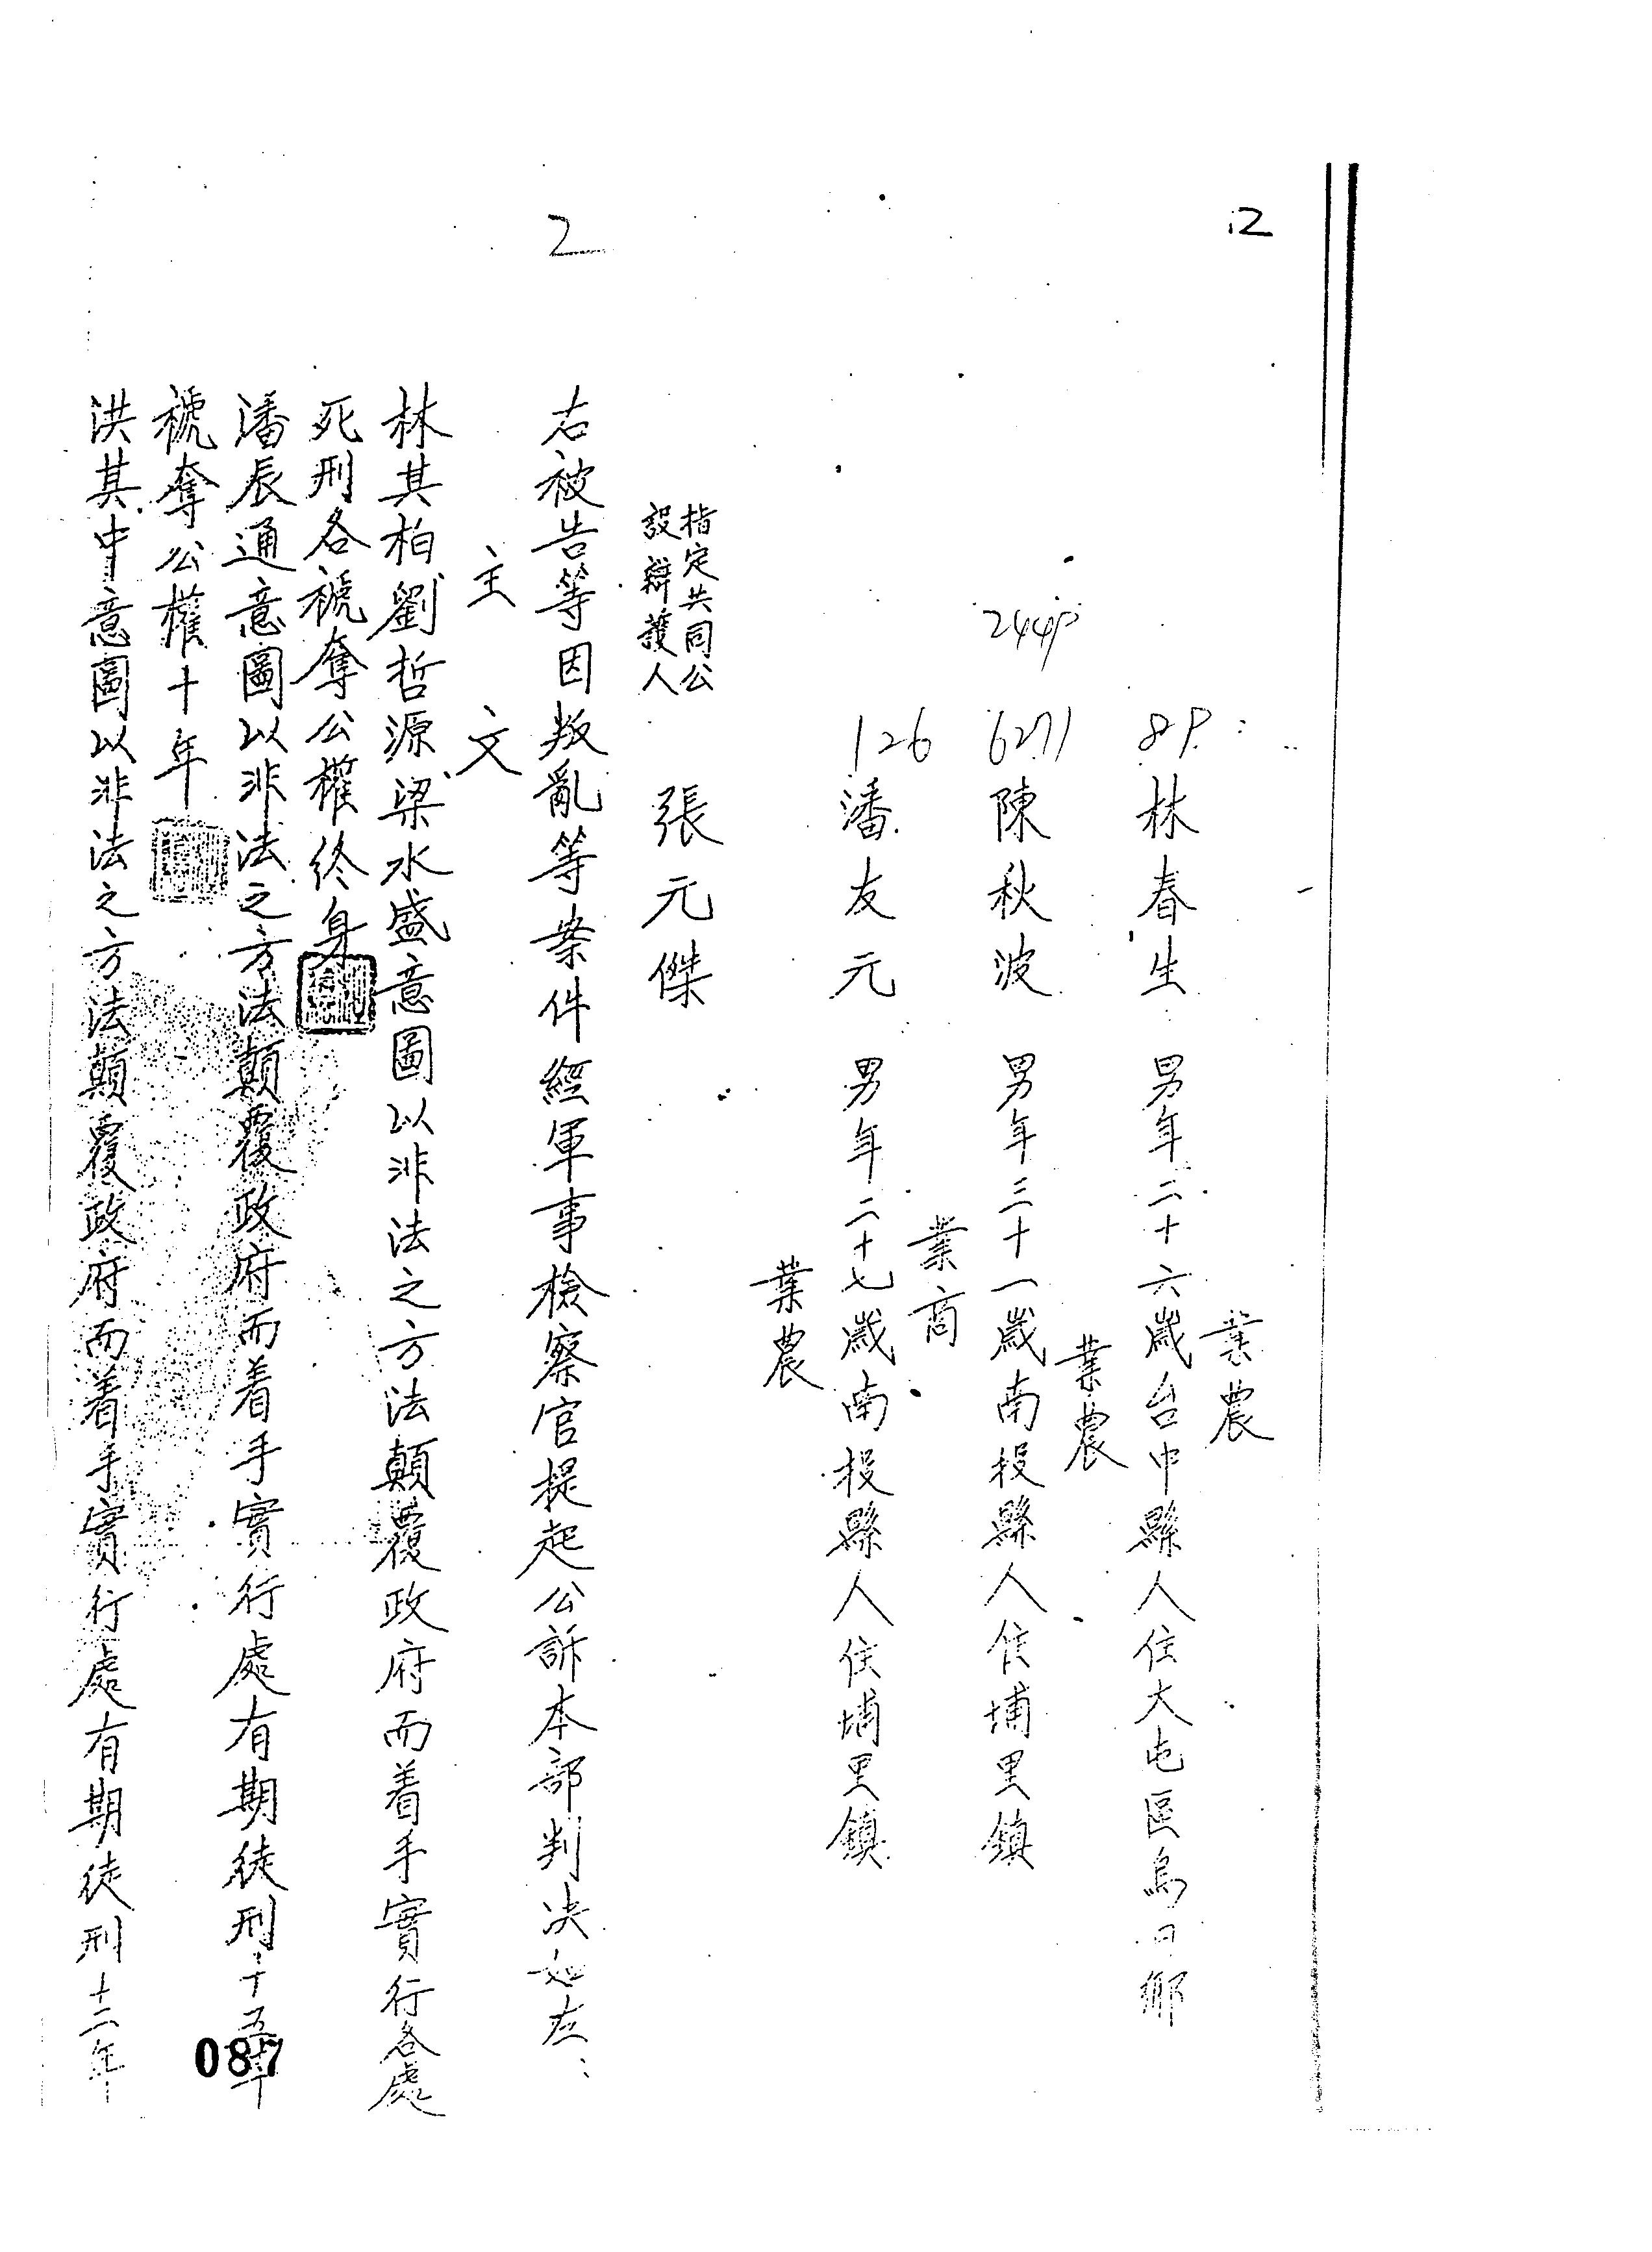 12
2
業農
89
林春生 男年二十六歲台中縣人住大屯區烏日鄉
業農
2449
6271
陳秋波 男年三十一歲南投縣人住埔里鎮
業商
126
潘友元 男年二十七歲南投縣人住埔里鎮
業農
指定共同公
設辯護人 張元傑
右被告等因叛亂等案件經軍事檢察官提起公訴本部判決如左:
主文
林其柏劉哲源梁水盛意圖以非法之方法顛覆政府而着手實行各處
死刑各褫奪公權終身
潘辰通意圖以非法之方法顛覆政府而着手實行處有期徒刑十五年
褫奪公權十年
洪其中意圖以非法之方法顛覆政府而着手實行處有期徒刑十二年
087